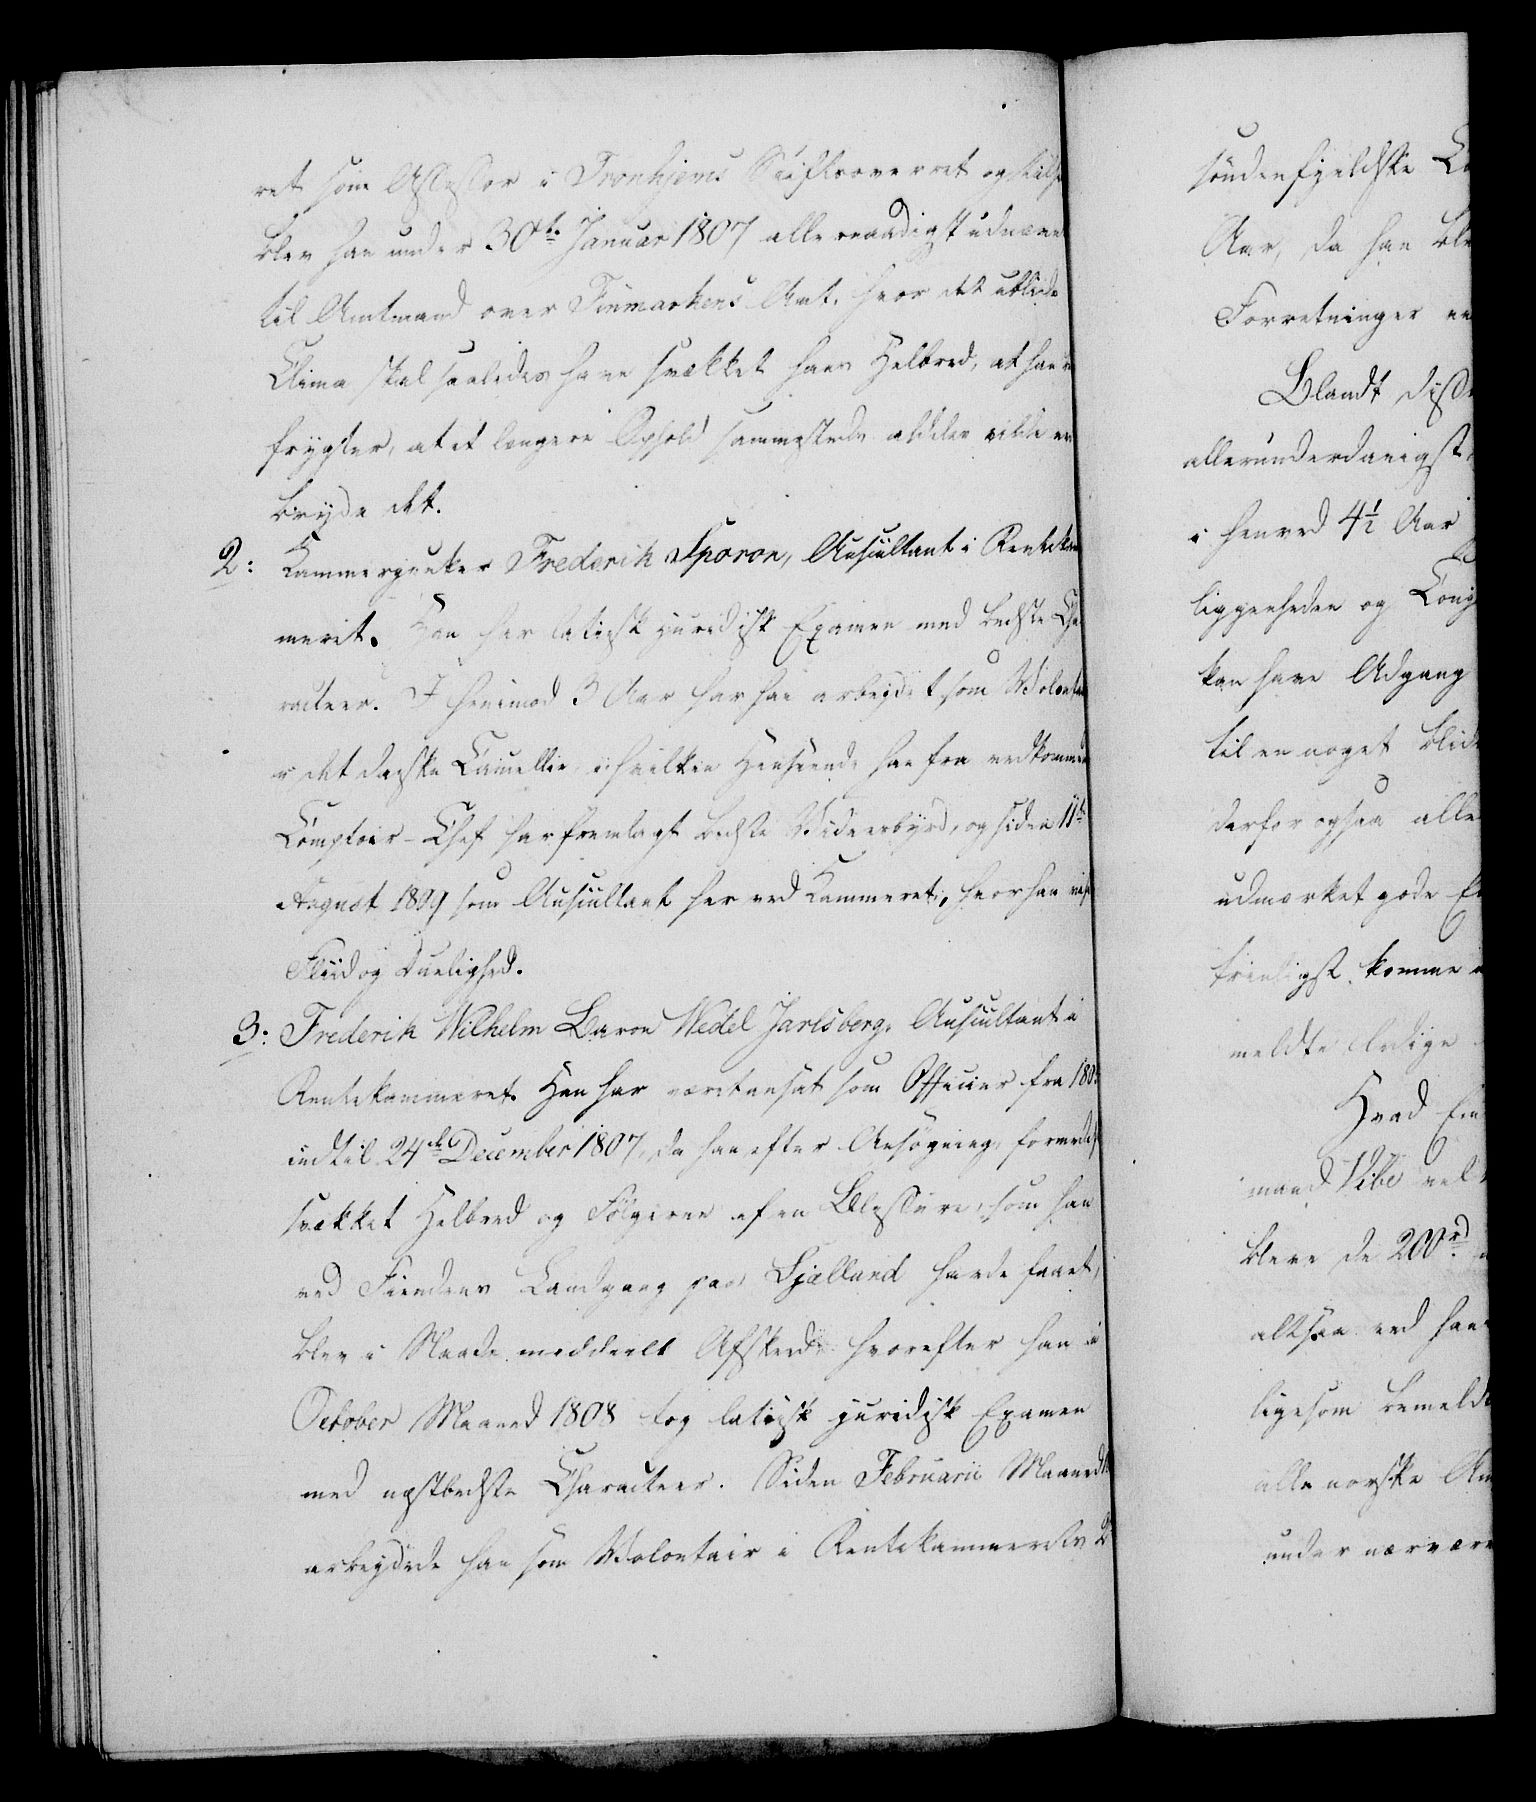 ret som Assessor i Tronhjems Stiftsoverret og
blev han under 30te Januar 1807 allernaadigst udnævn
til Amtmand over Finmarkens Amt, hvor det ublide
Clima skal saaledes have svækket hans Helbred, at han
frygter, at et længere Ophold sammesteds aldeles vilde
bryde det.
2: Kammerjunker Frederik Sporon, Auscultant i Rentekam
meret. Han har latinsk juridisk Examen med bedste Cha
racteer. I henimod 3 Aar har han arbeydet som Volontair
i det danske Cancellie, i hvilken Henseende han fra vedkommen
Comptoir-Chef har fremlagt bedste Vidnesbyrd, og siden 11te
August 1809 som Auscultant her ved Kammeret, hvor han
Fliid og Duelighed.
3: Frederik Wilhelm Baron Wedel Jarlsberg, Auscultant i
Rentekammeret. Han har været ansat som Officier fra 180
indtil 24de December 1807, da han efter Ansøgning, formedelst
svækket Helbred og Følgerne af en Blessure, som han
ved Fiendens Landgang paa Sjælland havde faaet,
blev i Naade meddeelt Afskeed, hvorefter han i
October Maaned 1808 tog latinsk juridisk Examen
med næstbedste Characteer. Siden Februarii Maaned
arbeydede han som Volontair i Rentekammerets
søndenfjeldske
Aar, da han ble
Forretninger
Blandt disse
allerunderdanigst
i henved 4½ Aar
liggenheden og
kan have Adgang
til en noget blid
derfor ogsaa alle
udmærket gode
trinligst komme
meldte
Hvad
mand Vibe vel
bleve de 200 rd
altsaa ved han
ligesom bemeld
alle norske Am
under nærvære